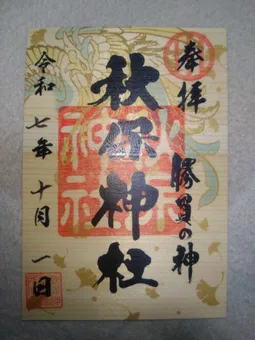 奉拝
勝負の神
秋保神社
令和七年十月一日